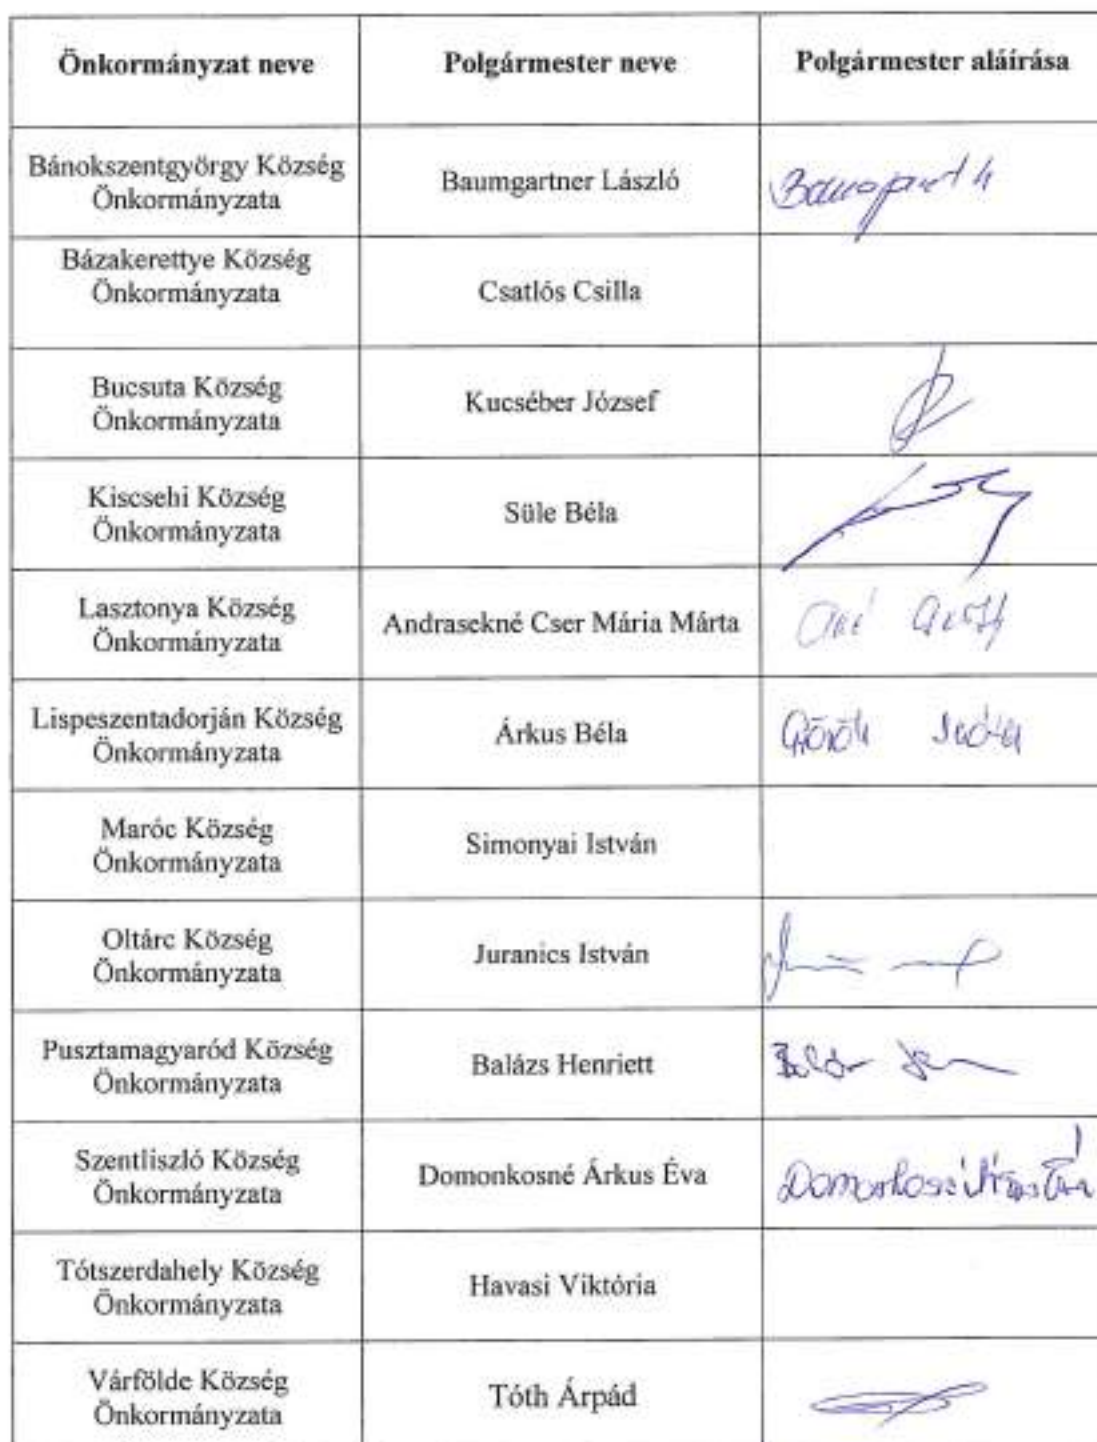 Önkormányzat neve
Polgármester neve
Polgármester aláírása
Bánokszentgyörgy Község
Önkormányzata
Baumgartner László
Bázakerettye Község
Önkormányzata
Csatlós Csilla
Bucsuta Község
Önkormányzata
Kucséber József
Kiscsehi Község
Önkormányzata
Süle Béla
Lasztonya Község
Önkormányzata
Andrasekné Cser Mária Márta
Lispeszentadorján Község
Önkormányzata
Árkus Béla
Maróc Község
Önkormányzata
Simonyai István
Oltárc Község
Önkormányzata
Juranics István
Pusztamagyaród Község
Önkormányzata
Balázs Henriett
Szentliszló Község
Önkormányzata
Domonkosné Árkus Éva
Domonkosné Árkus Éva
Tótszerdahely Község
Önkormányzata
Havasi Viktória
Várfölde Község
Önkormányzata
Tóth Árpád